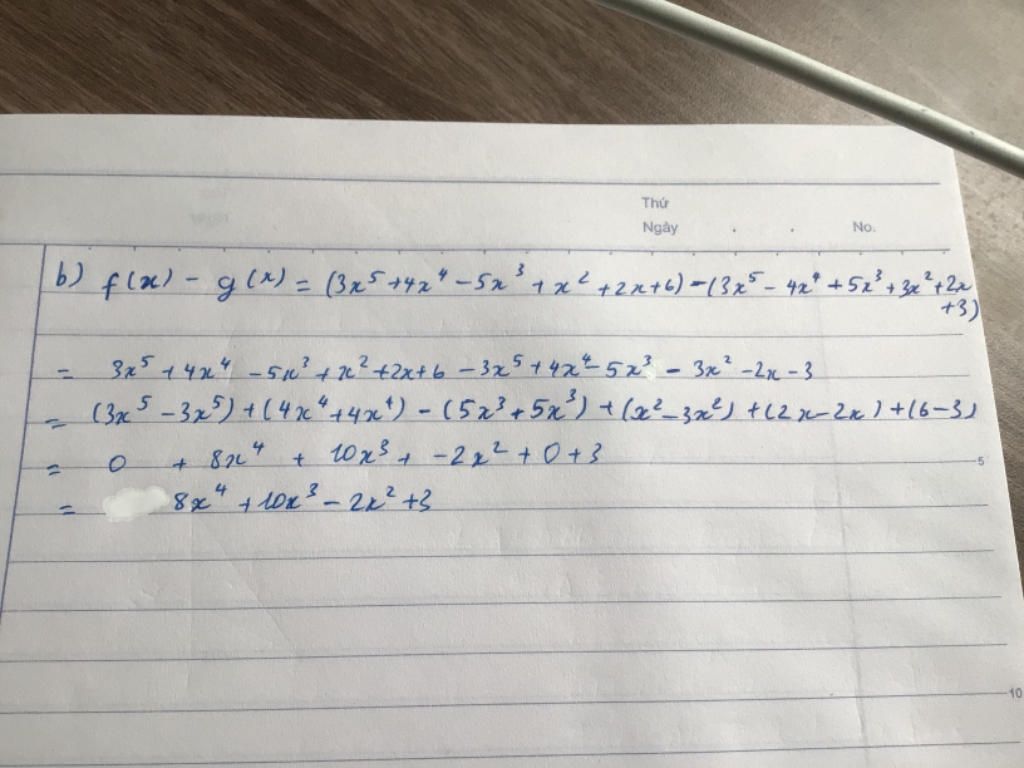 Thứ
Ngày . . No.
b) f(x) - g(x) = (3x⁵ +4x⁴ - 5x³ + x² + 2x + 6) - (3x⁵ - 4x⁴ + 5x³ + 3x² + 2x
+3)
= 3x⁵ + 4x⁴ - 5x³ + x² + 2x + 6 - 3x⁵ + 4x⁴ - 5x³ - 3x² - 2x - 3
= (3x⁵ - 3x⁵) + (4x⁴ + 4x⁴) - (5x³ + 5x³) + (x² - 3x²) + (2x - 2x) + (6 - 3)
= 0 + 8x⁴ + 10x³ + -2x² + 0 + 3
5
= 8x⁴ + 10x³ - 2x² + 3
10